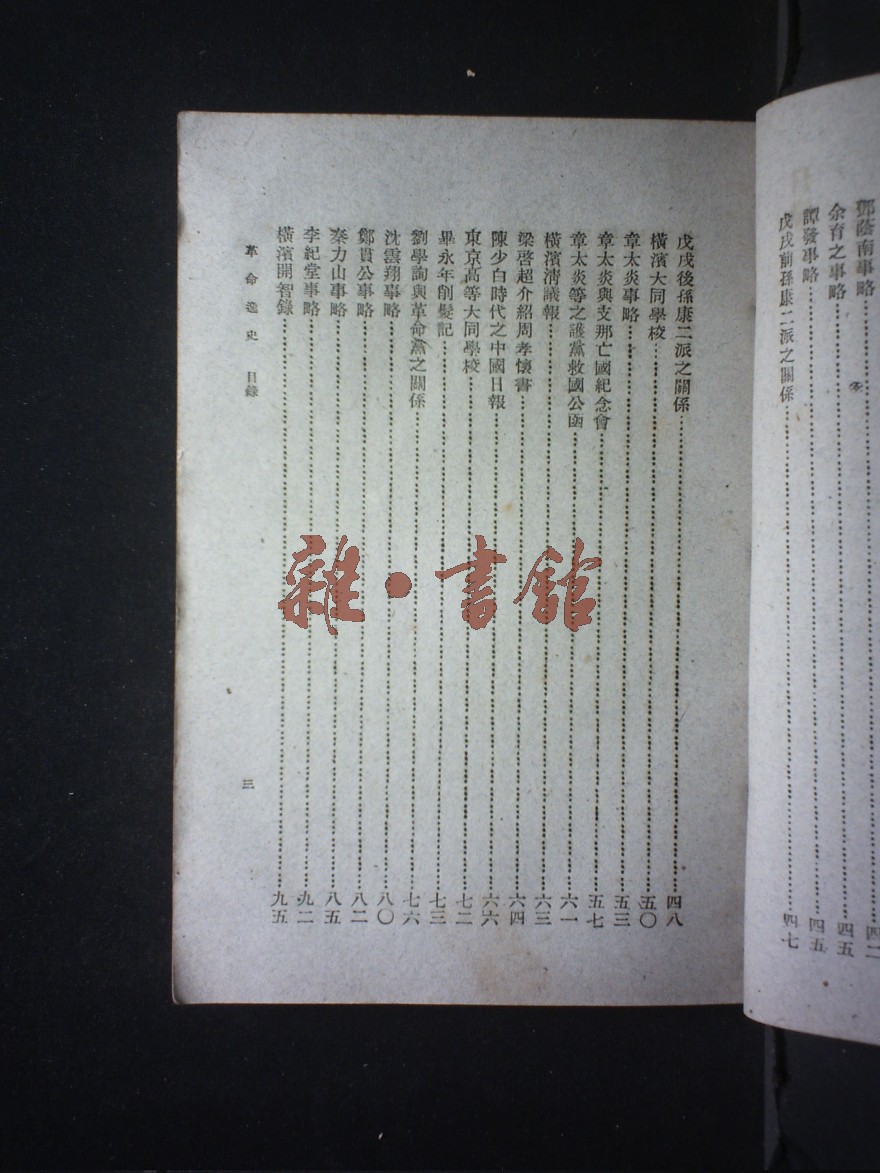 鄧蔭南事略 四二
余育之事略 四五
譚發事略 四五
戊戌前孫康二派之關係 四七
戊戌後孫康二派之關係 四八
橫濱大同學校 五〇
章太炎事略 五三
章太炎與支那亡國紀念會 五七
章太炎等之護黨救國公函 六一
橫濱清議報 六三
梁啓超介紹周孝懷書 六四
陳少白時代之中國日報 六六
東京高等大同學校 七二
畢永年削髮記 七三
劉學詢與革命黨之關係 七六
沈雲翔事略 八〇
鄭貫公事略 八二
秦力山事略 八五
李紀堂事略 九二
橫濱開智錄 九五
革命逸史 目錄
三
雜·書館